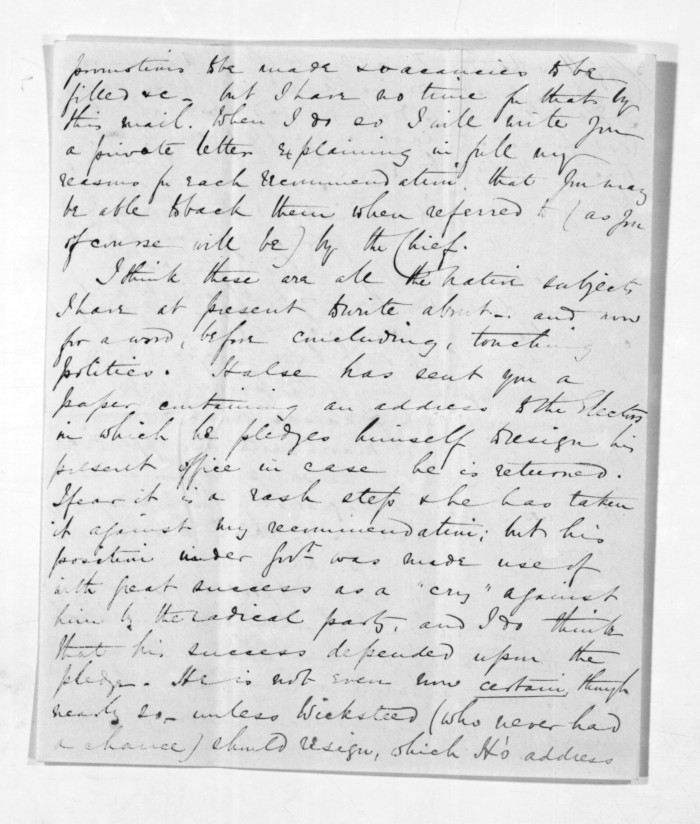 promotions to be made & vacancies to be
filled &c - but I have no time for that by
this mail. When I do so I will write you
a private letter explaining in full my
reasons for each recommendation, that you may
be able to back them when referred to (as you
of course will be) by the Chief.
I think these are all the Native subjects
I have at present to write about - and now
for a word, before concluding, touching
politics. Halse has sent you a
paper containing an address to the Electors
in which he pledges himself to resign his
present office in case he is returned.
I fear it is a rash step & he has taken
it against my recommendation; but his
position under Govt. was made use of
with great success as a "cry" against
him by the radical party, and I do think
that his success depended upon the
pledge. He is not even now certain, though
nearly so - unless Wicksteed (who never had
a chance) should resign, which H's address